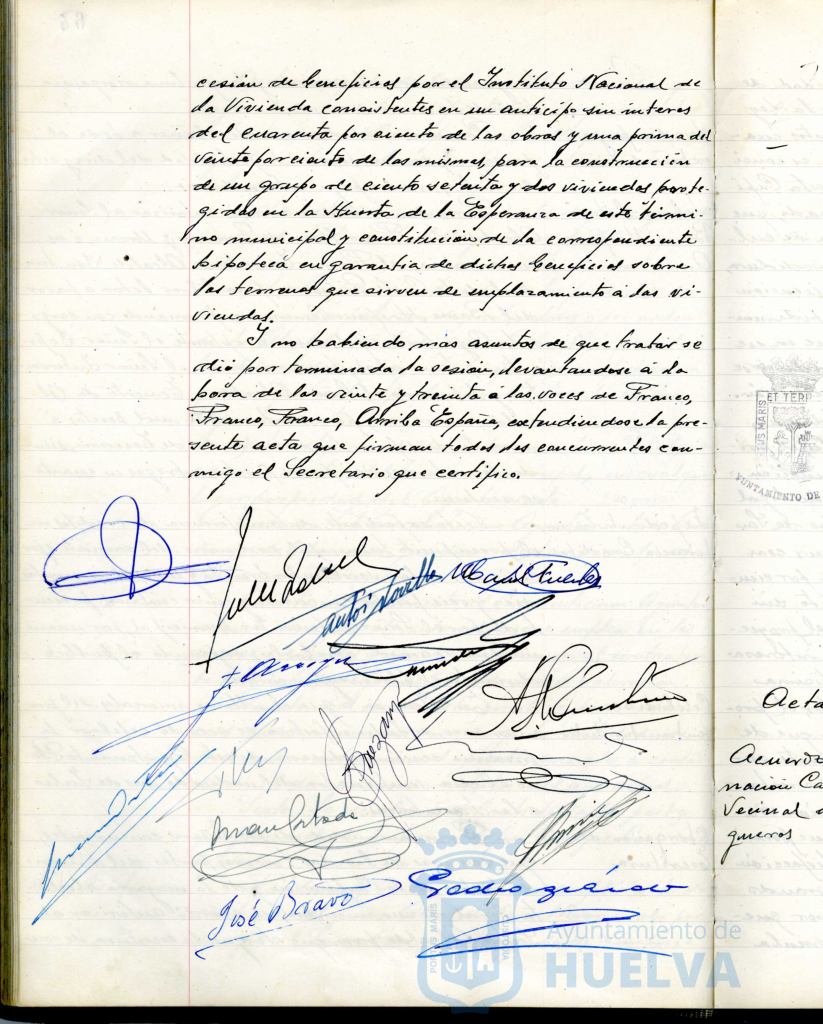 cesión de beneficios por el Instituto Nacional de
la Vivienda consistentes en un anticipo sin interes
del cuarenta por ciento de las obras y una prima del
veinte por ciento de las mismas, para la construcción
de un grupo de ciento setenta y dos viviendas prote-
gidas en la Huerta de la Esperanza de este térmi-
no municipal y constitución de la correspondiente
hipoteca en garantia de dichos beneficios sobre
los terrenos que sirven de emplazamiento á las vi-
viendas.
Y no habiendo más asuntos de que tratar se
dió por terminada la sesión, levantandose á la
hora de las veinte y treinta á las voces de Franco,
Franco, Franco, Arriba España, extendiendose la pre-
sente acta que firman todos los concurrentes con-
migo el Secretario que certifico.
José Bravo
Pedro
Acta
nación Ca
Vecinal
gueros
PORTUS MARIS
ET TERR
AYUNTAMIENTO DE
PORTUS MARIS
CUSTODIA
Ayuntamiento de
HUELVA